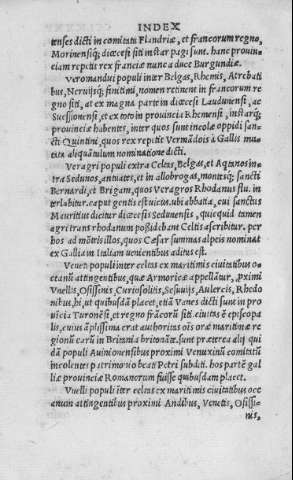 INDEX
tenses dicti in comitatu Flandriæ, et francorum regno,
Morinensiq; diœcesi siti instar pagi sunt. hanc prouin‍
ciam repetit rex franciæ nunc a duce Burgundiæ.
Veromandui populi inter Belgas, Rhemis, Atrebati
bus, Neruijsq; finitimi, nomen retinent in francorum re
gno siti, at ex magna parte in diœcesi Laudunensi, ac
Suessionensi, et ex toto in prouincia Rhemensi, instarq;
prouinciæ habentes, inter quos sunt incolæ oppidi san‍
cti Quintini, quos rex repetit Vermādois à Gallis mu
tata aliquātulum nominatione dicti.
Veragri populi extra Celtas, Belgas, et Aqtanos in
tra Sedunos, antuates, et in allobrogas, montesq; sancti
Bernardi, et Brigam, quos Veragros Rhodanus flu. in
terlabitur. caput gentis est uicus. ubi abbatia, cui sanctus
Mauritius dicitur diœcesis Sedunensis, quicquid tamen
agri trans rhodanum possidebant Celtis ascribitur. per
hos ad mōtes illos, quos Cæsar summas alpeis nominat
ex Gallia in Italiam uenientibus aditus est.
Veneti populi inter celtas ex maritimis ciuitatibus o‍
ceanū attingentibus, quæ Armoricæ appellātur, pximi
Vnellis, Osissinis, Curiosolitis, Sesuuijs, Aulercis, Rhedo
nibus, hi, ut quibusdā placet, etiā Vanes dicti sunt in pro
uīcia Turonēsi, et regno frācorū siti. ciuitas ē episcopa
lis, cuius āplissima erat authoritas oīs oræ maritimæ re
gionū earū in Britannia britonātē. sunt prætereà alij qui
dā populi Auinionensibus proximi Venuxinū comitatū
incolentes patrimonio beati Petri subditi. hos partē gal‍
liæ prouinciæ Romanorum fuisse quibusdam placet.
Vnelli populi īter celtas ex maritimis ciuitatibus oce
anum attingentibus proximi Andibus, Venetis, Osissi‍
nis,